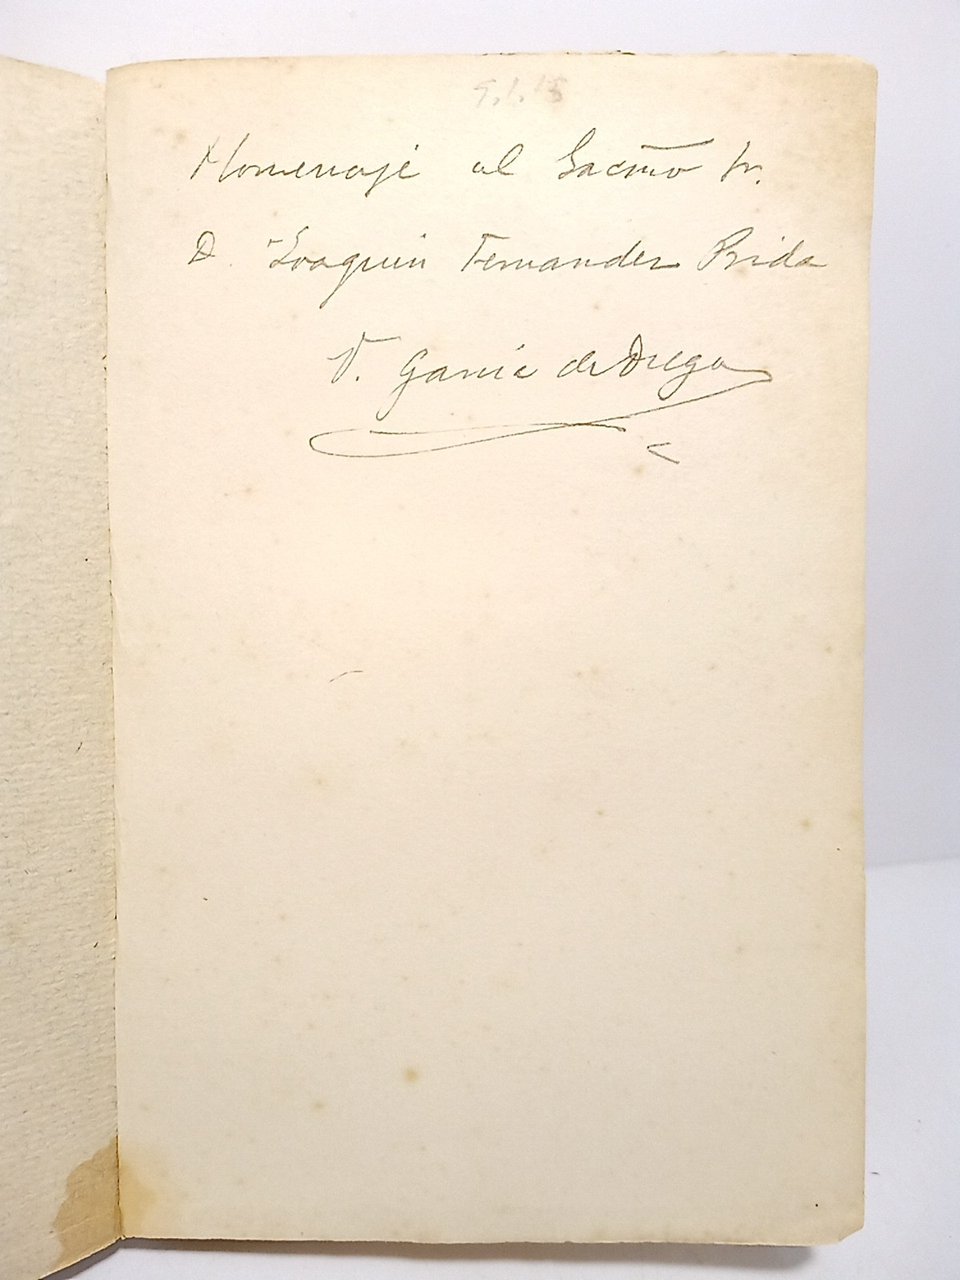 Homenaje al Sr.
D. Joaquin Fernandez Prida
V. Garcia de Diego